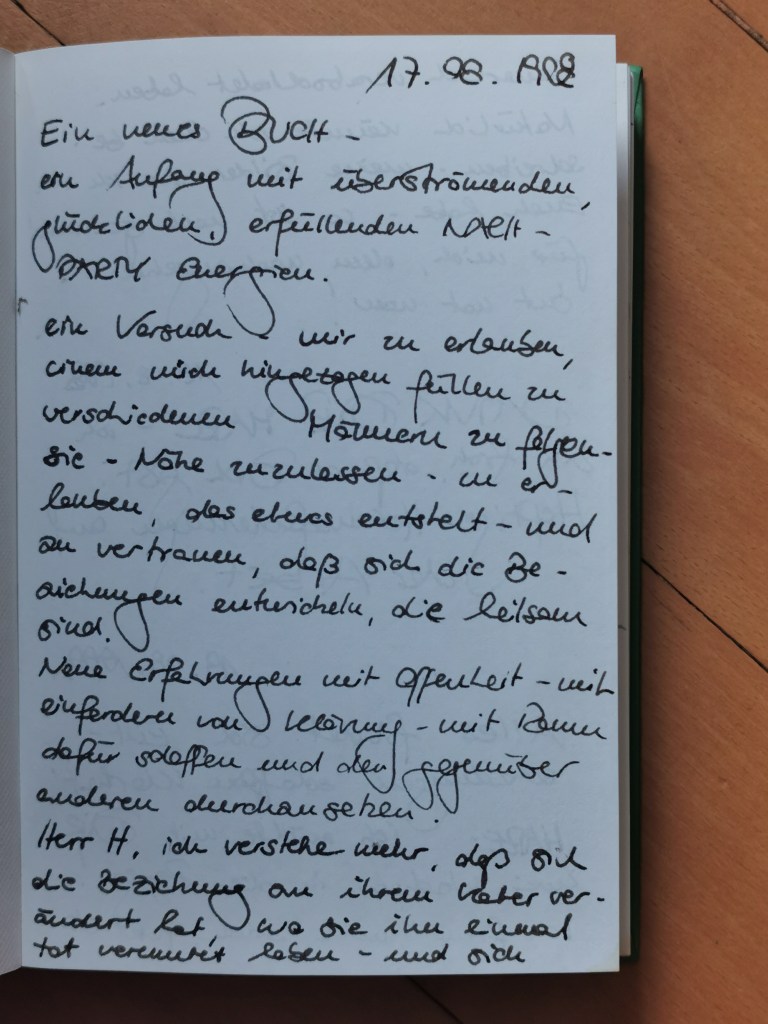 17. 08. 1992
Ein neues BUCH -
ein Anfang mit überströmenden,
glücklichen, erfüllenden NACH -
PARTY Energien.
ein Versuch - mir zu erlauben,
einem mich hingezogen fühlen zu
verschiedenen Männern zu folgen -
sie - Nähe zuzulassen - zu er-
lauben, das etwas entsteht - und
zu vertrauen, daß sich die Be -
ziehungen entwickeln, die heilsam
sind.
Neue Erfahrungen mit Offenheit - mit
einfordern von Klärung - mit Raum
dafür schaffen und den gegenüber
anderen durchzusetzen.
Herr H, ich verstehe mehr, daß sich
die Beziehung zu ihrem Vater ver-
ändert hat, wo sie ihn einmal
tot vermutet haben - und sich